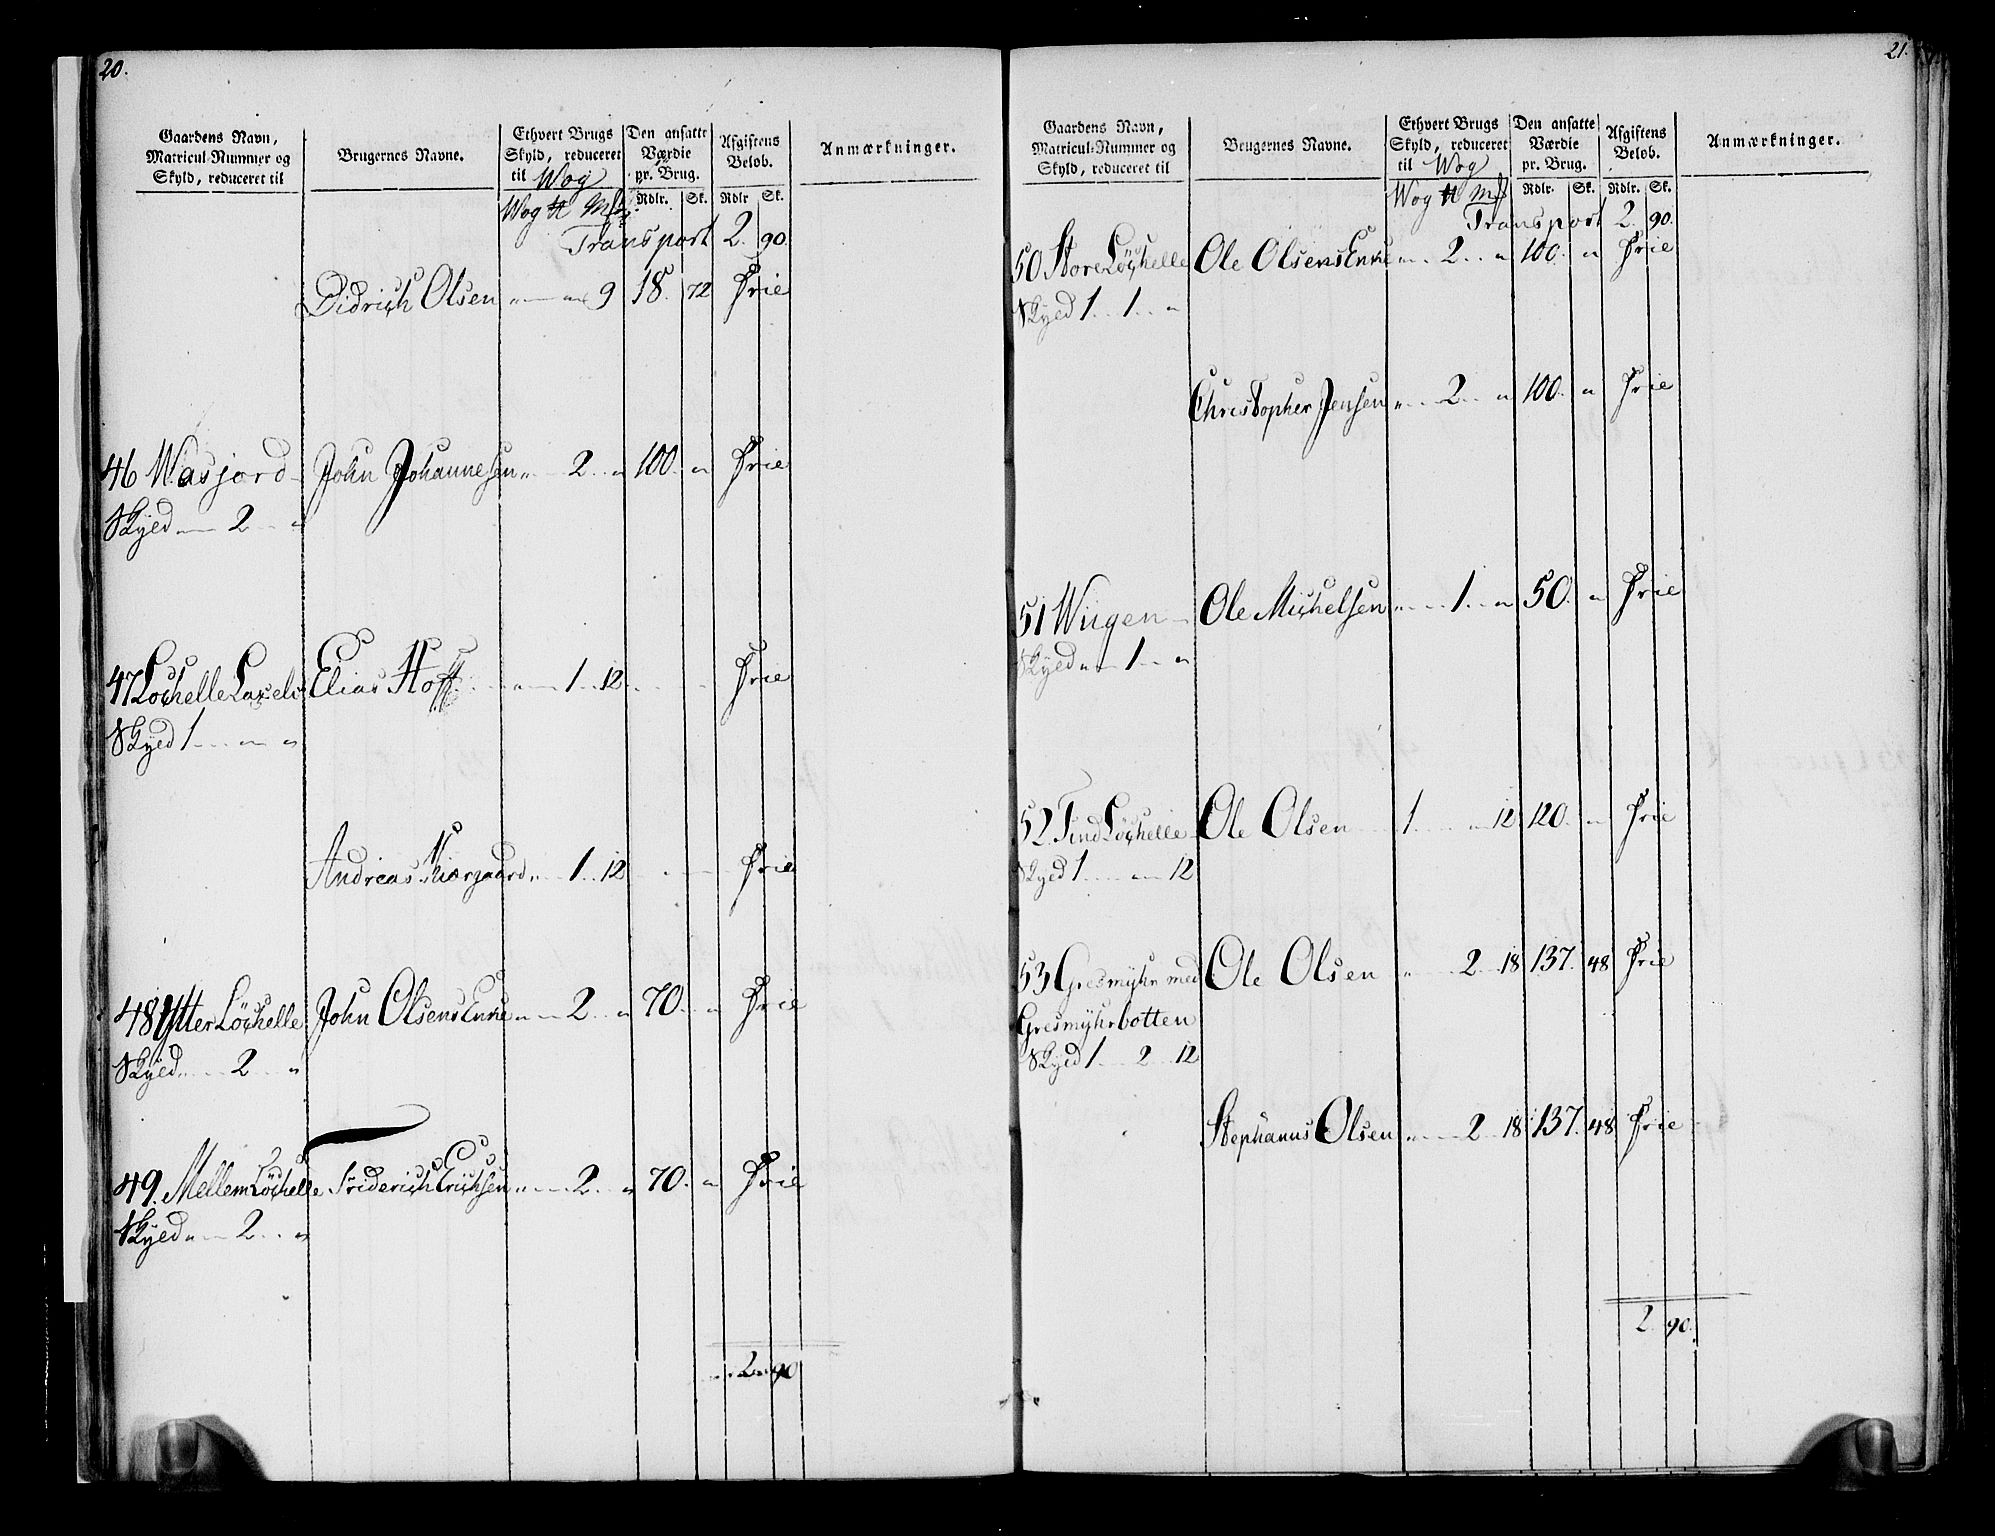 20.
Gaardens Navn, Matricul-Nummer og Skyld, reduceret til
Brugernes Navne.
Ethvert Brugs Skyld, reduceret til Wog
Den ansatte Værdie pr. Brug.
Afgiftens Beløb.
Anmærkninger.
Wog ℔ Mk Rdlr. Sk. Rdlr Sk.
Transport 2. 90.
Didrich Olsen " " 9 18. 72 Frie
46 Wasjord John Johannesen " 2 " 100. " Frie
Skyed " 2 "
47 Löchelle Elias Hoff " 1 12 Frie
Skyed 1 " "
Andreas Kiærgaard " 1 12 Frie
48 Ytter Löchelle John Olsens Enke " 2 " 70. " Frie
Skyed " 2 "
49. Mellem Löchelle Friderich Erichsen " 2 " 70. " Frie
Skyed " 2 "
2 90
21.
Gaardens Navn, Matricul-Nummer og Skyld, reduceret til
Brugernes Navne.
Ethvert Brugs Skyld, reduceret til Wog
Den ansatte Værdie pr. Brug.
Afgiftens Beløb.
Anmærkninger.
Wog ℔ Mk Rdlr. Sk. Rdlr. Sk.
Transport 2. 90.
50 Store Löchelle Ole Olsens Enke " 2 " 100. " Frie
Skyed 1 1 "
Christopher Jensen " 2 " 100. " Frie
51 Wiigen Ole Michelsen " 1 " 50. " Frie
Skyed " 1 "
52 Find Löchelle Ole Olsen 1 " 12 120. " Frie
Skyed 1 " 12
53 Gresmyhr med Ole Olsen " 2 18 137. 48 Frie
Gresmyhrbotten
Skyed 1 2 12
Stephanus Olsen " 2 18 137. 48 Frie
2. 90.